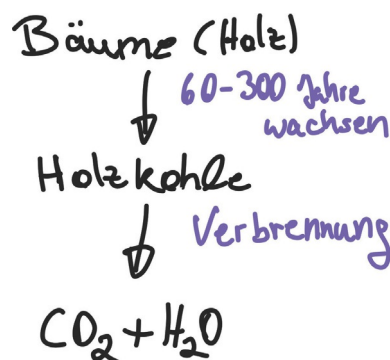 Bäume (Holz)
60-300 Jahre
wachsen
Holzkohle
Verbrennung
CO₂ + H₂O